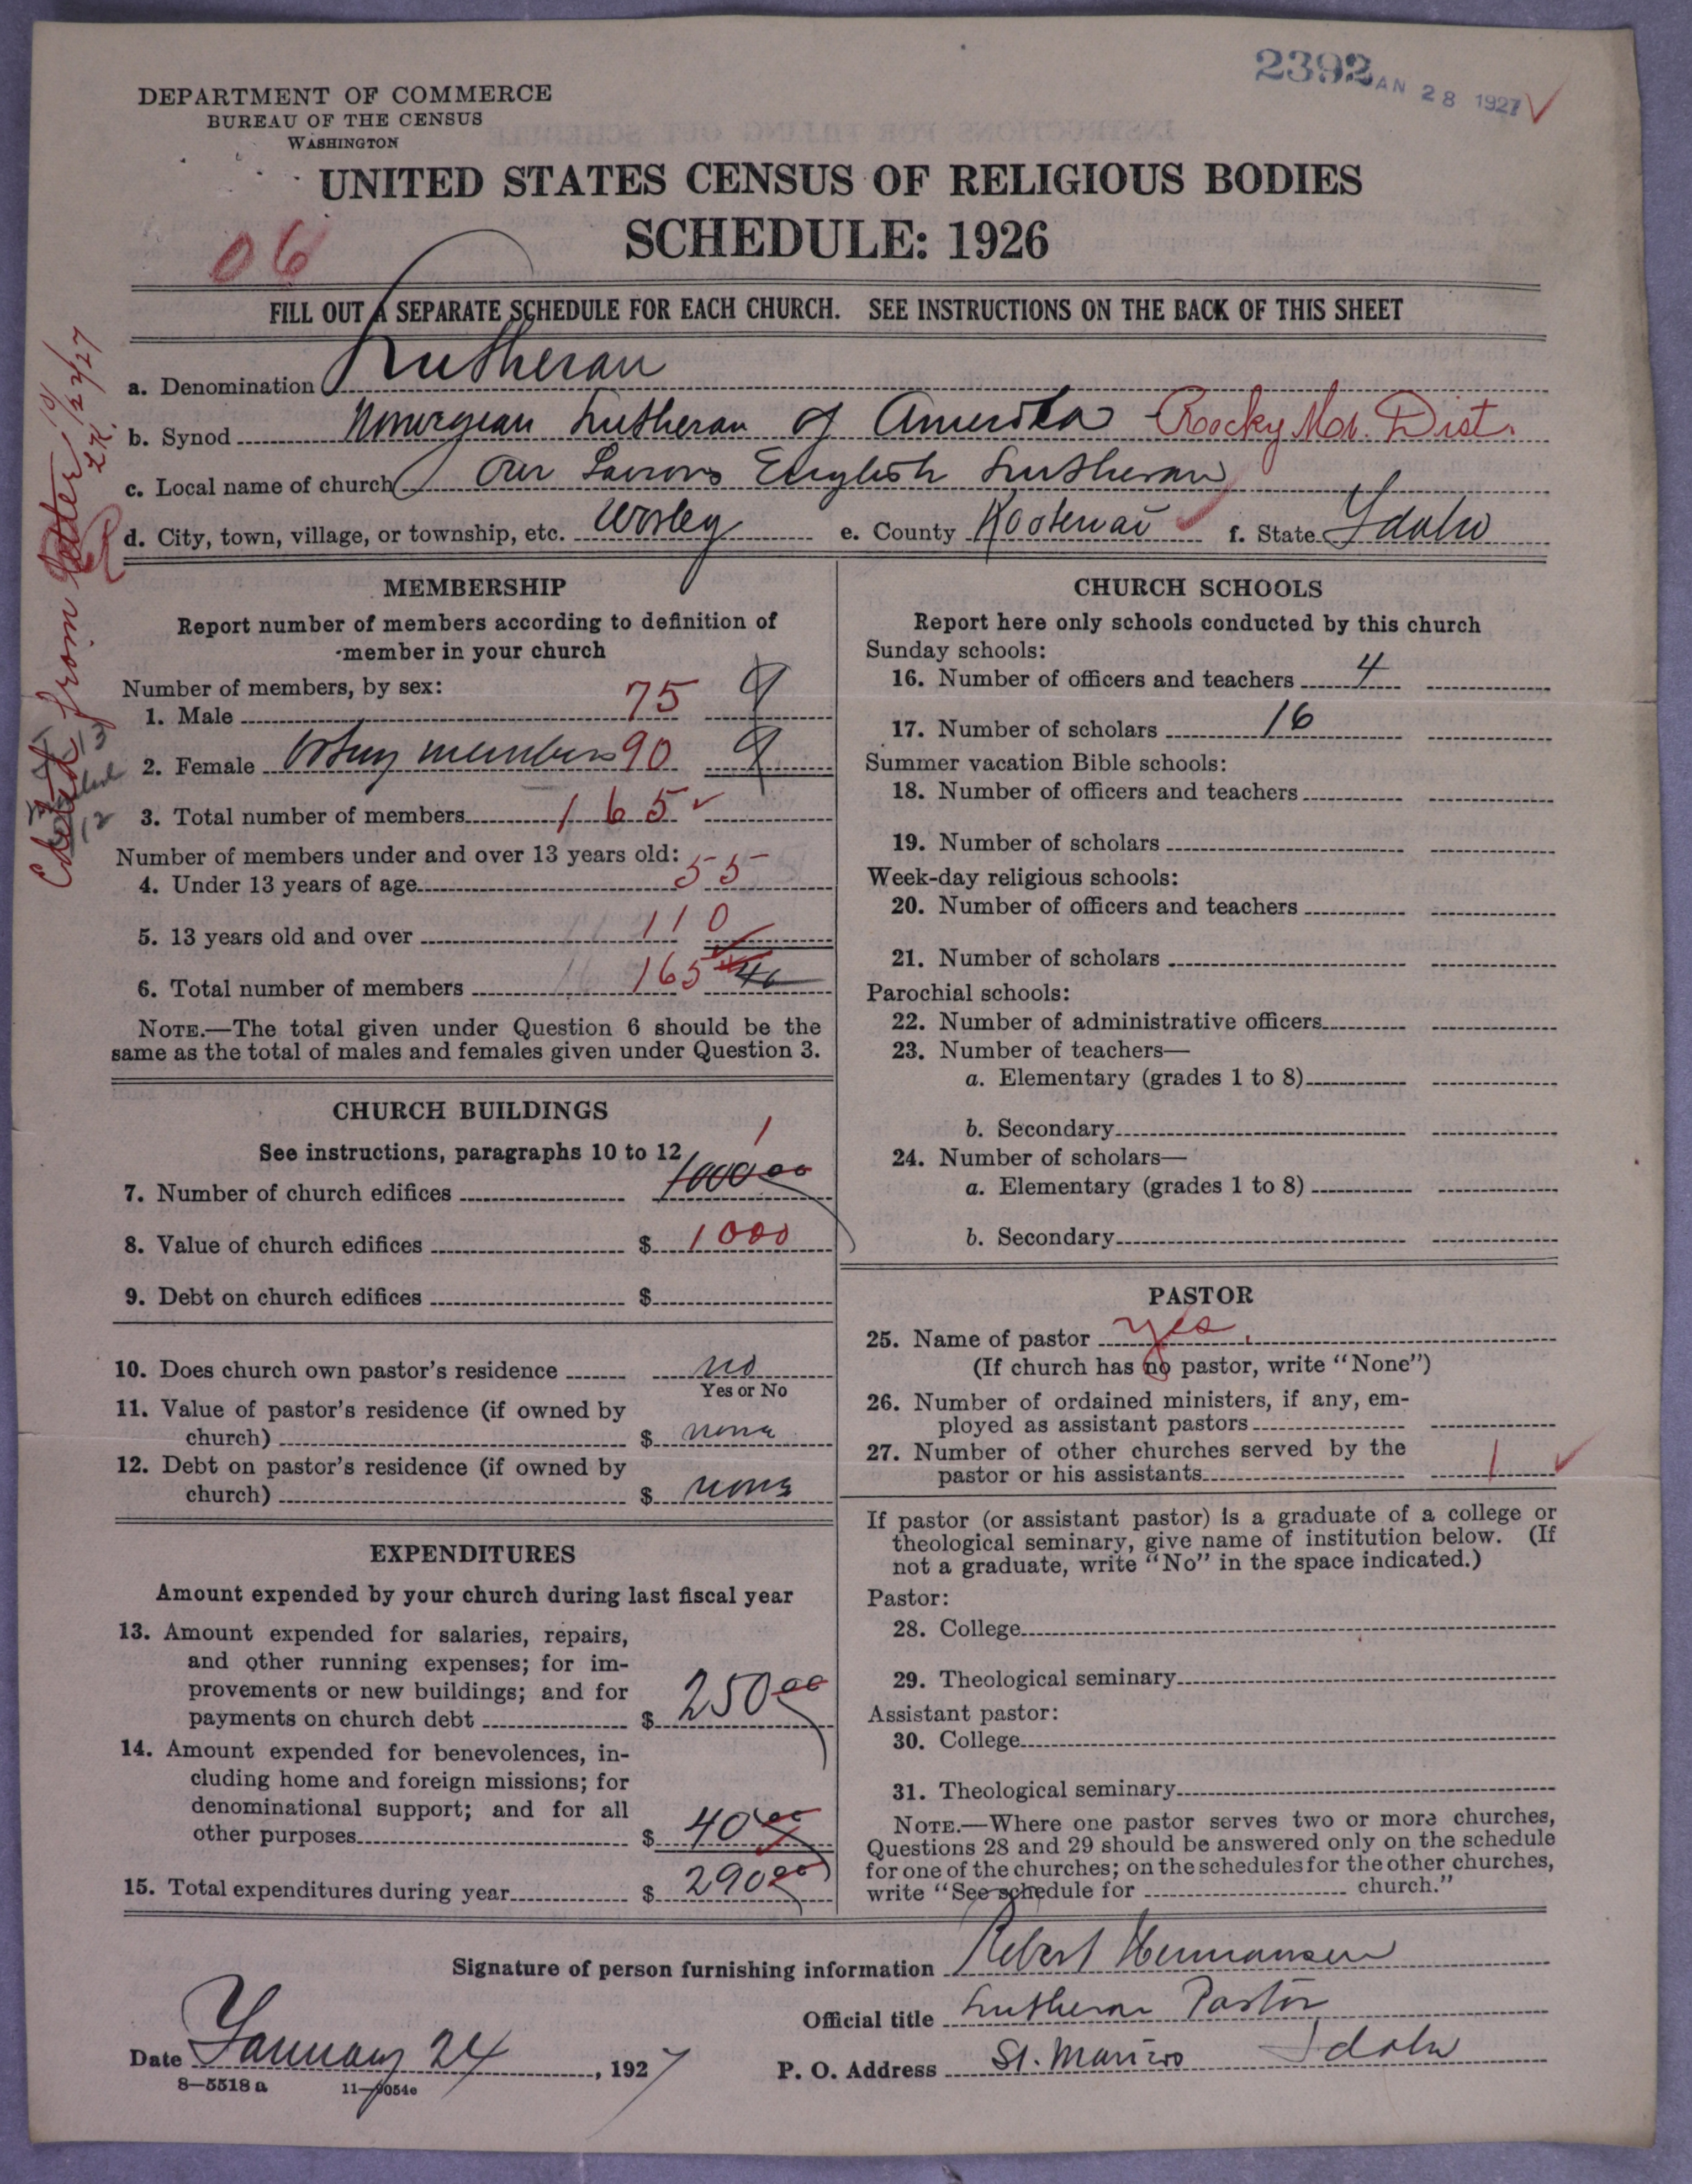 2392 JAN 28 1927 ✓
DEPARTMENT OF COMMERCE
BUREAU OF THE CENSUS
WASHINGTON
UNITED STATES CENSUS OF RELIGIOUS BODIES
SCHEDULE: 1926
06
FILL OUT A SEPARATE SCHEDULE FOR EACH CHURCH. SEE INSTRUCTIONS ON THE BACK OF THIS SHEET
a. Denomination Lutheran
b. Synod Norwegian Lutheran of America - Rocky Mt. Dist.
c. Local name of church Our Saviors English Lutheran
d. City, town, village, or township, etc. Worley e. County Kootenai ✓ f. State Idaho
from letter
MEMBERSHIP
Report number of members according to definition of
member in your church
Number of members, by sex:
1. Male 75 9
2. Female members 90 9
3. Total number of members 165 ✓
Number of members under and over 13 years old:
4. Under 13 years of age 55
5. 13 years old and over 110
6. Total number of members 165 46
NOTE.—The total given under Question 6 should be the
same as the total of males and females given under Question 3.
CHURCH BUILDINGS
See instructions, paragraphs 10 to 12
7. Number of church edifices 1 1000 00
8. Value of church edifices $ 1000
9. Debt on church edifices $
10. Does church own pastor's residence no
Yes or No
11. Value of pastor's residence (if owned by
church) $ none
12. Debt on pastor's residence (if owned by
church) $ none
EXPENDITURES
Amount expended by your church during last fiscal year
13. Amount expended for salaries, repairs,
and other running expenses; for im-
provements or new buildings; and for
payments on church debt $ 250 00
14. Amount expended for benevolences, in-
cluding home and foreign missions; for
denominational support; and for all
other purposes $ 40 00
15. Total expenditures during year $ 290 00
CHURCH SCHOOLS
Report here only schools conducted by this church
Sunday schools:
16. Number of officers and teachers 4
17. Number of scholars 16
Summer vacation Bible schools:
18. Number of officers and teachers
19. Number of scholars
Week-day religious schools:
20. Number of officers and teachers
21. Number of scholars
Parochial schools:
22. Number of administrative officers
23. Number of teachers—
a. Elementary (grades 1 to 8)
b. Secondary
24. Number of scholars—
a. Elementary (grades 1 to 8)
b. Secondary
PASTOR
25. Name of pastor yes
(If church has no pastor, write "None")
26. Number of ordained ministers, if any, em-
ployed as assistant pastors
27. Number of other churches served by the
pastor or his assistants 1 ✓
If pastor (or assistant pastor) is a graduate of a college or
theological seminary, give name of institution below. (If
not a graduate, write "No" in the space indicated.)
Pastor:
28. College
29. Theological seminary
Assistant pastor:
30. College
31. Theological seminary
NOTE.—Where one pastor serves two or more churches,
Questions 28 and 29 should be answered only on the schedule
for one of the churches; on the schedules for the other churches,
write "See schedule for church."
Signature of person furnishing information Hermansen
Official title Lutheran Pastor
Date January 24, 1927 P. O. Address St. Maries Idaho
8—5518 a 11—9054e